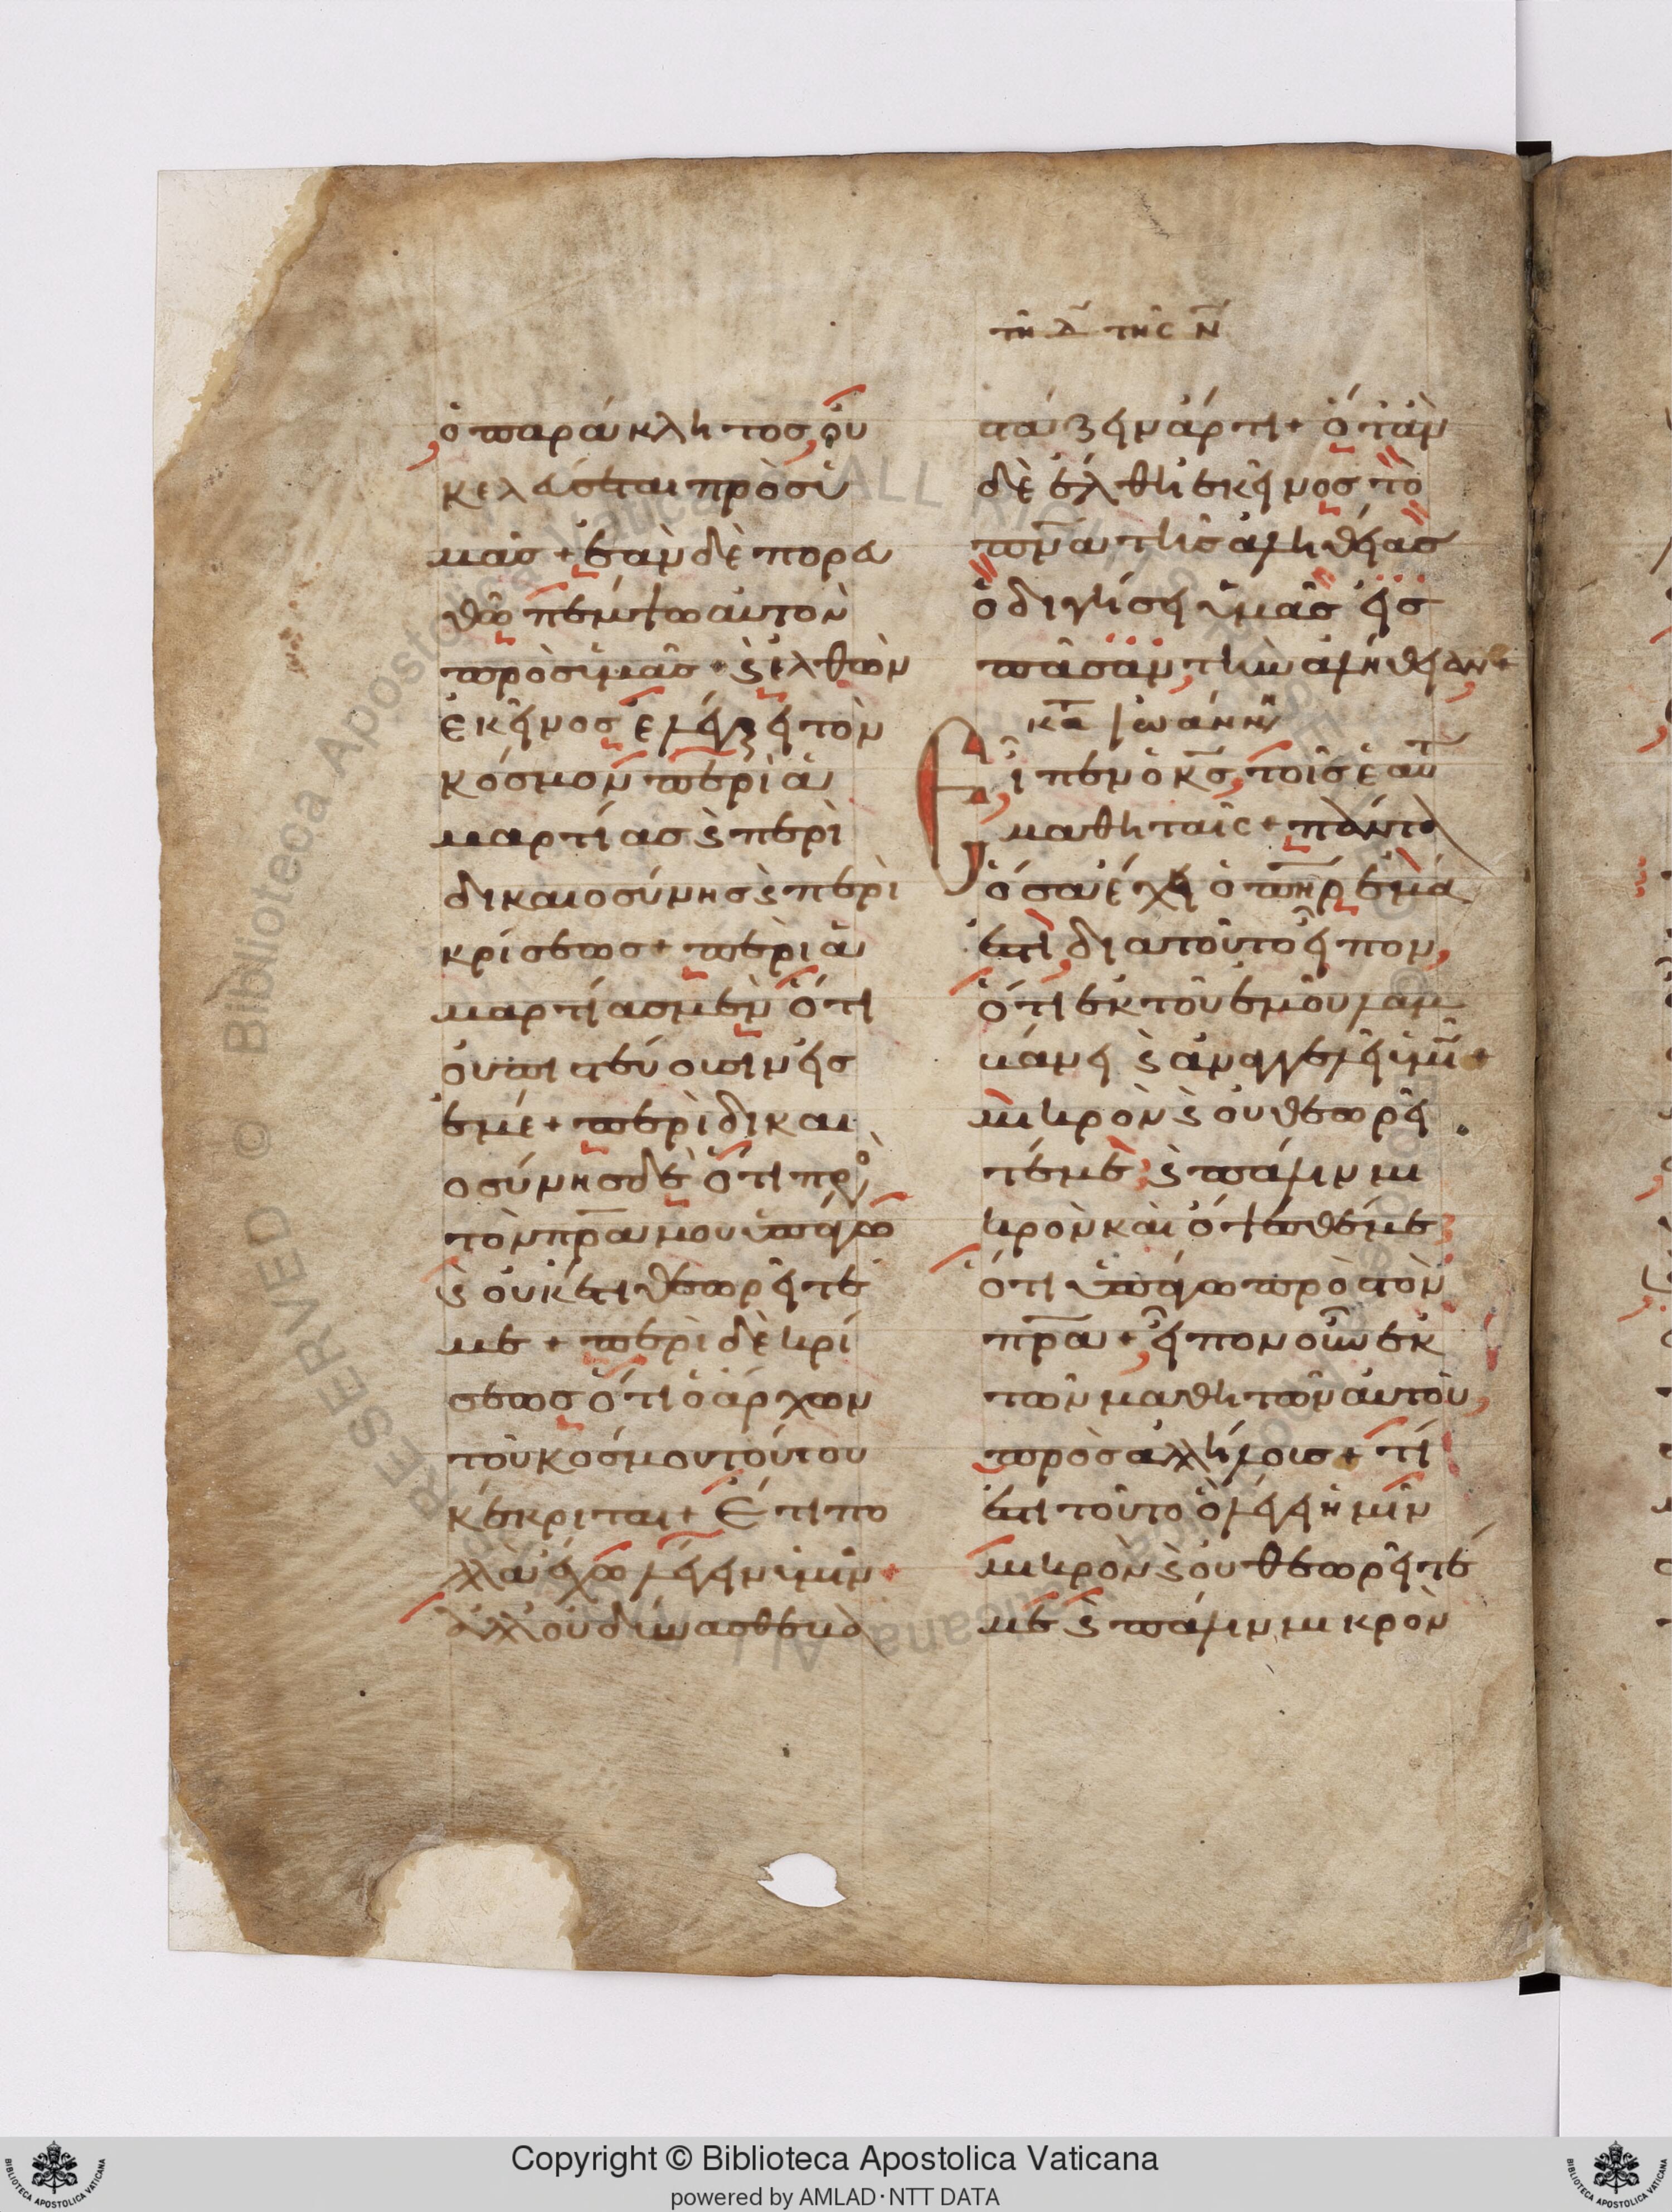 τῆ δ̅ τῆς ν̅
ὁ παράκλητος οὐ
κ ελεύσεται πρὸς ὑ
μᾶς + ἐὰν δὲ πορευ
θῶ πέμψω αὐτὸν
πρὸς ὑμᾶς + ϗ ἐλθὼν
ἐκεῖνος ἐλέγξει τὸν
κόσμον περὶ ἁ
μαρτίας ϗ περὶ
δικαιοσύνης ϗ περὶ
κρίσεως + περὶ ἁ
μαρτίας μὲν ὅτι
οὐ πιστεύουσιν εἰς
ἐμέ + περὶ δικαι
οσύνης δὲ ὅτι πρὸ
τὸν πρ̅α μου ὑπάγω
ϗ οὐκέτι θεωρεῖτέ
με + περὶ δὲ κρί
σεως ὅτι ὁ ἄρχων
τοῦ κόσμου τούτου
κέκριται + Ἔτι πο
λλὰ ἔχω λέγειν ὑμῖν +
ἀλλ οὐ δύνασθε βα
στάζειν ἄρτι + ὅταν
δὲ ἔλθη ἐκεῖνος τὸ
πν̅α τῆς ἀληθείας
ὁδιγήσει ὑμᾶς εἰς
πᾶσαν τὴν ἀλήθειαν +
κτ̅α Ἰωάννη
Εἶπεν ὁ κ̅ς τοῖς ἑαυτ
μαθηταῖς + πάντα
ὅσα ἔχει ὁ π̅ηρ ἐμά
ἐστι διατοῦτο εἶπον,
ὅτι ἐκ τοῦ ἐμοῦ λαμ
βάνει ϗ ἀναγγελεῖ ὑμῖ +
μικρὸν ϗ οὐ θεωρεῖ
τέ με ϗ πάλιν μι
κρὸν καὶ ὄψεσθέ με
ὅτι ὑπάγω πρὸς τὸν
πρ̅α + εἶπον οὖν ἐκ
τῶν μαθητῶν αὐτοῦ,
πρὸς ἀλλήλους + τί
ἐστι τοῦτο ὃ λέγει ἡμῖν
μικρὸν ϗ οὐ θεωρεῖτέ
με ϗ πάλιν μικρὸν
Copyright © Biblioteca Apostolica Vaticana
powered by AMLAD·NTT DATA